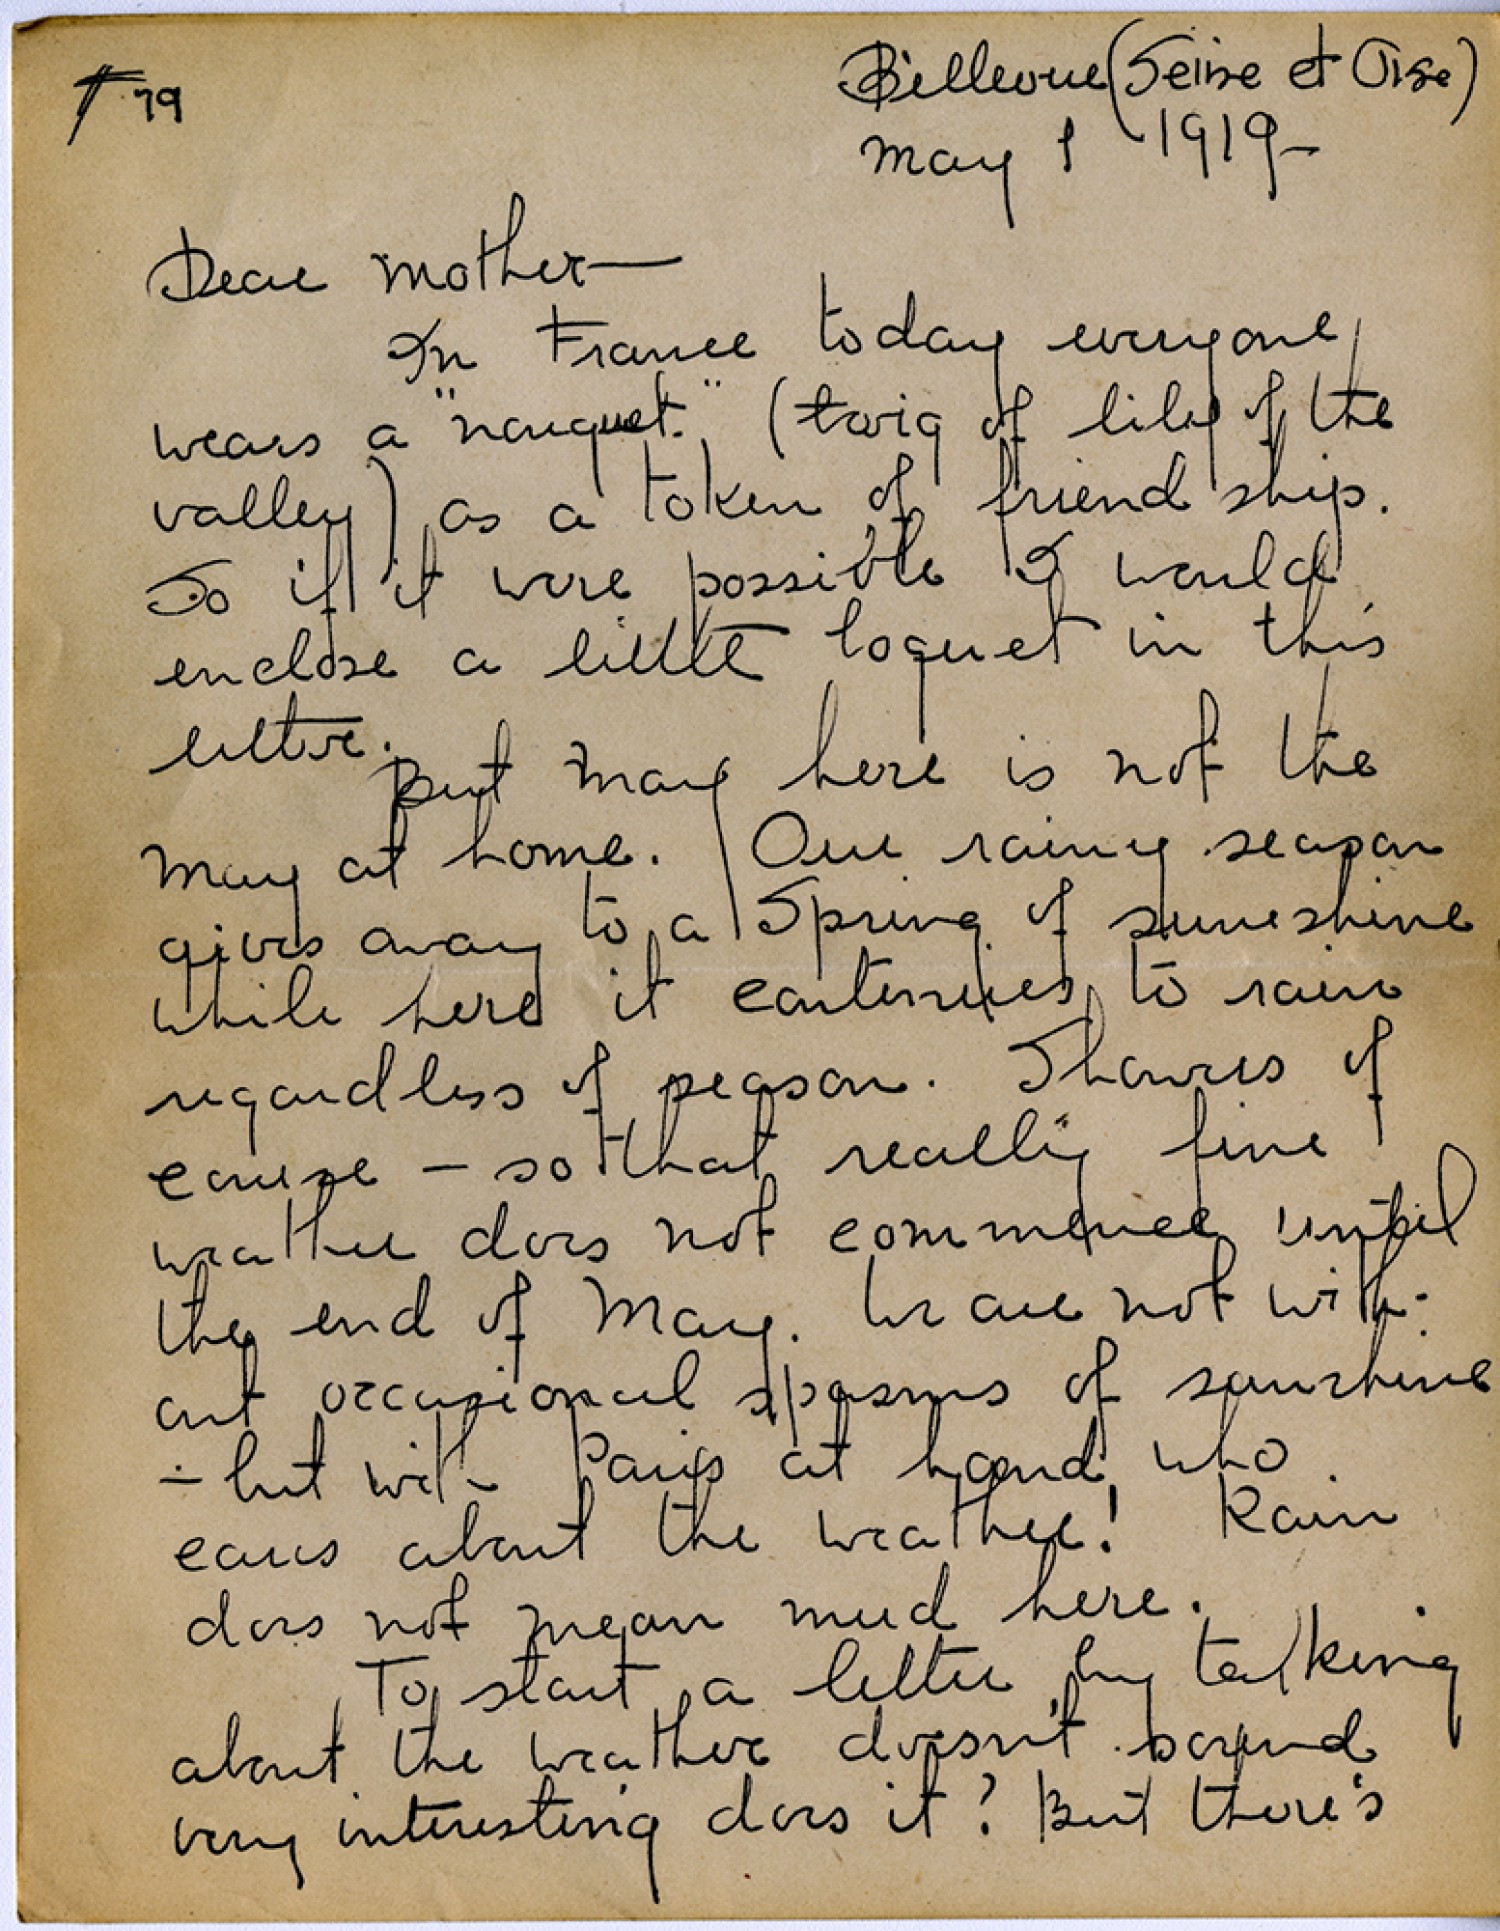 # 79
Bellevue (Seine et Oise)
May 1 1919-
Dear Mother—
In France today everyone
wears a "nouquet" (twig of lily of the
valley) as a token of friendship.
So if it were possible I would
enclose a little loquet in this
letter.
But May here is not the
May at home. Our rainy season
gives away to a Spring of sunshine
while here it continues to rain
regardless of season. Showers of
course - so that really fine
weather does not commence until
the end of May. We are not with-
out occasional spasms of sunshine
- but with Paris at hand, who
cares about the weather! Rain
does not mean mud here.
To start a letter by talking
about the weather doesn't sound
very interesting does it? But there's